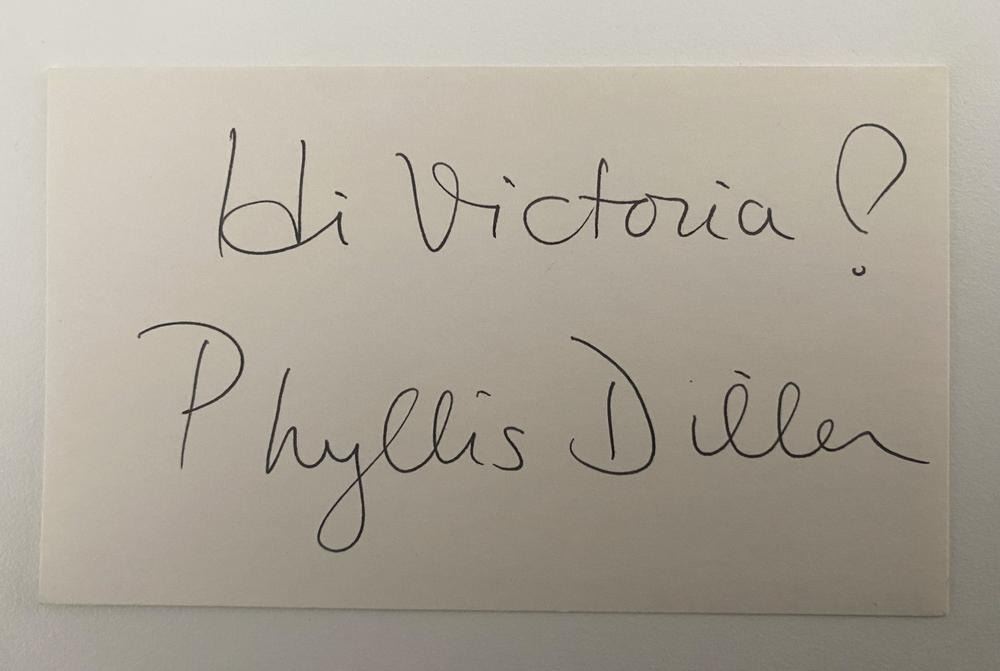 Hi Victoria!
Phyllis Diller